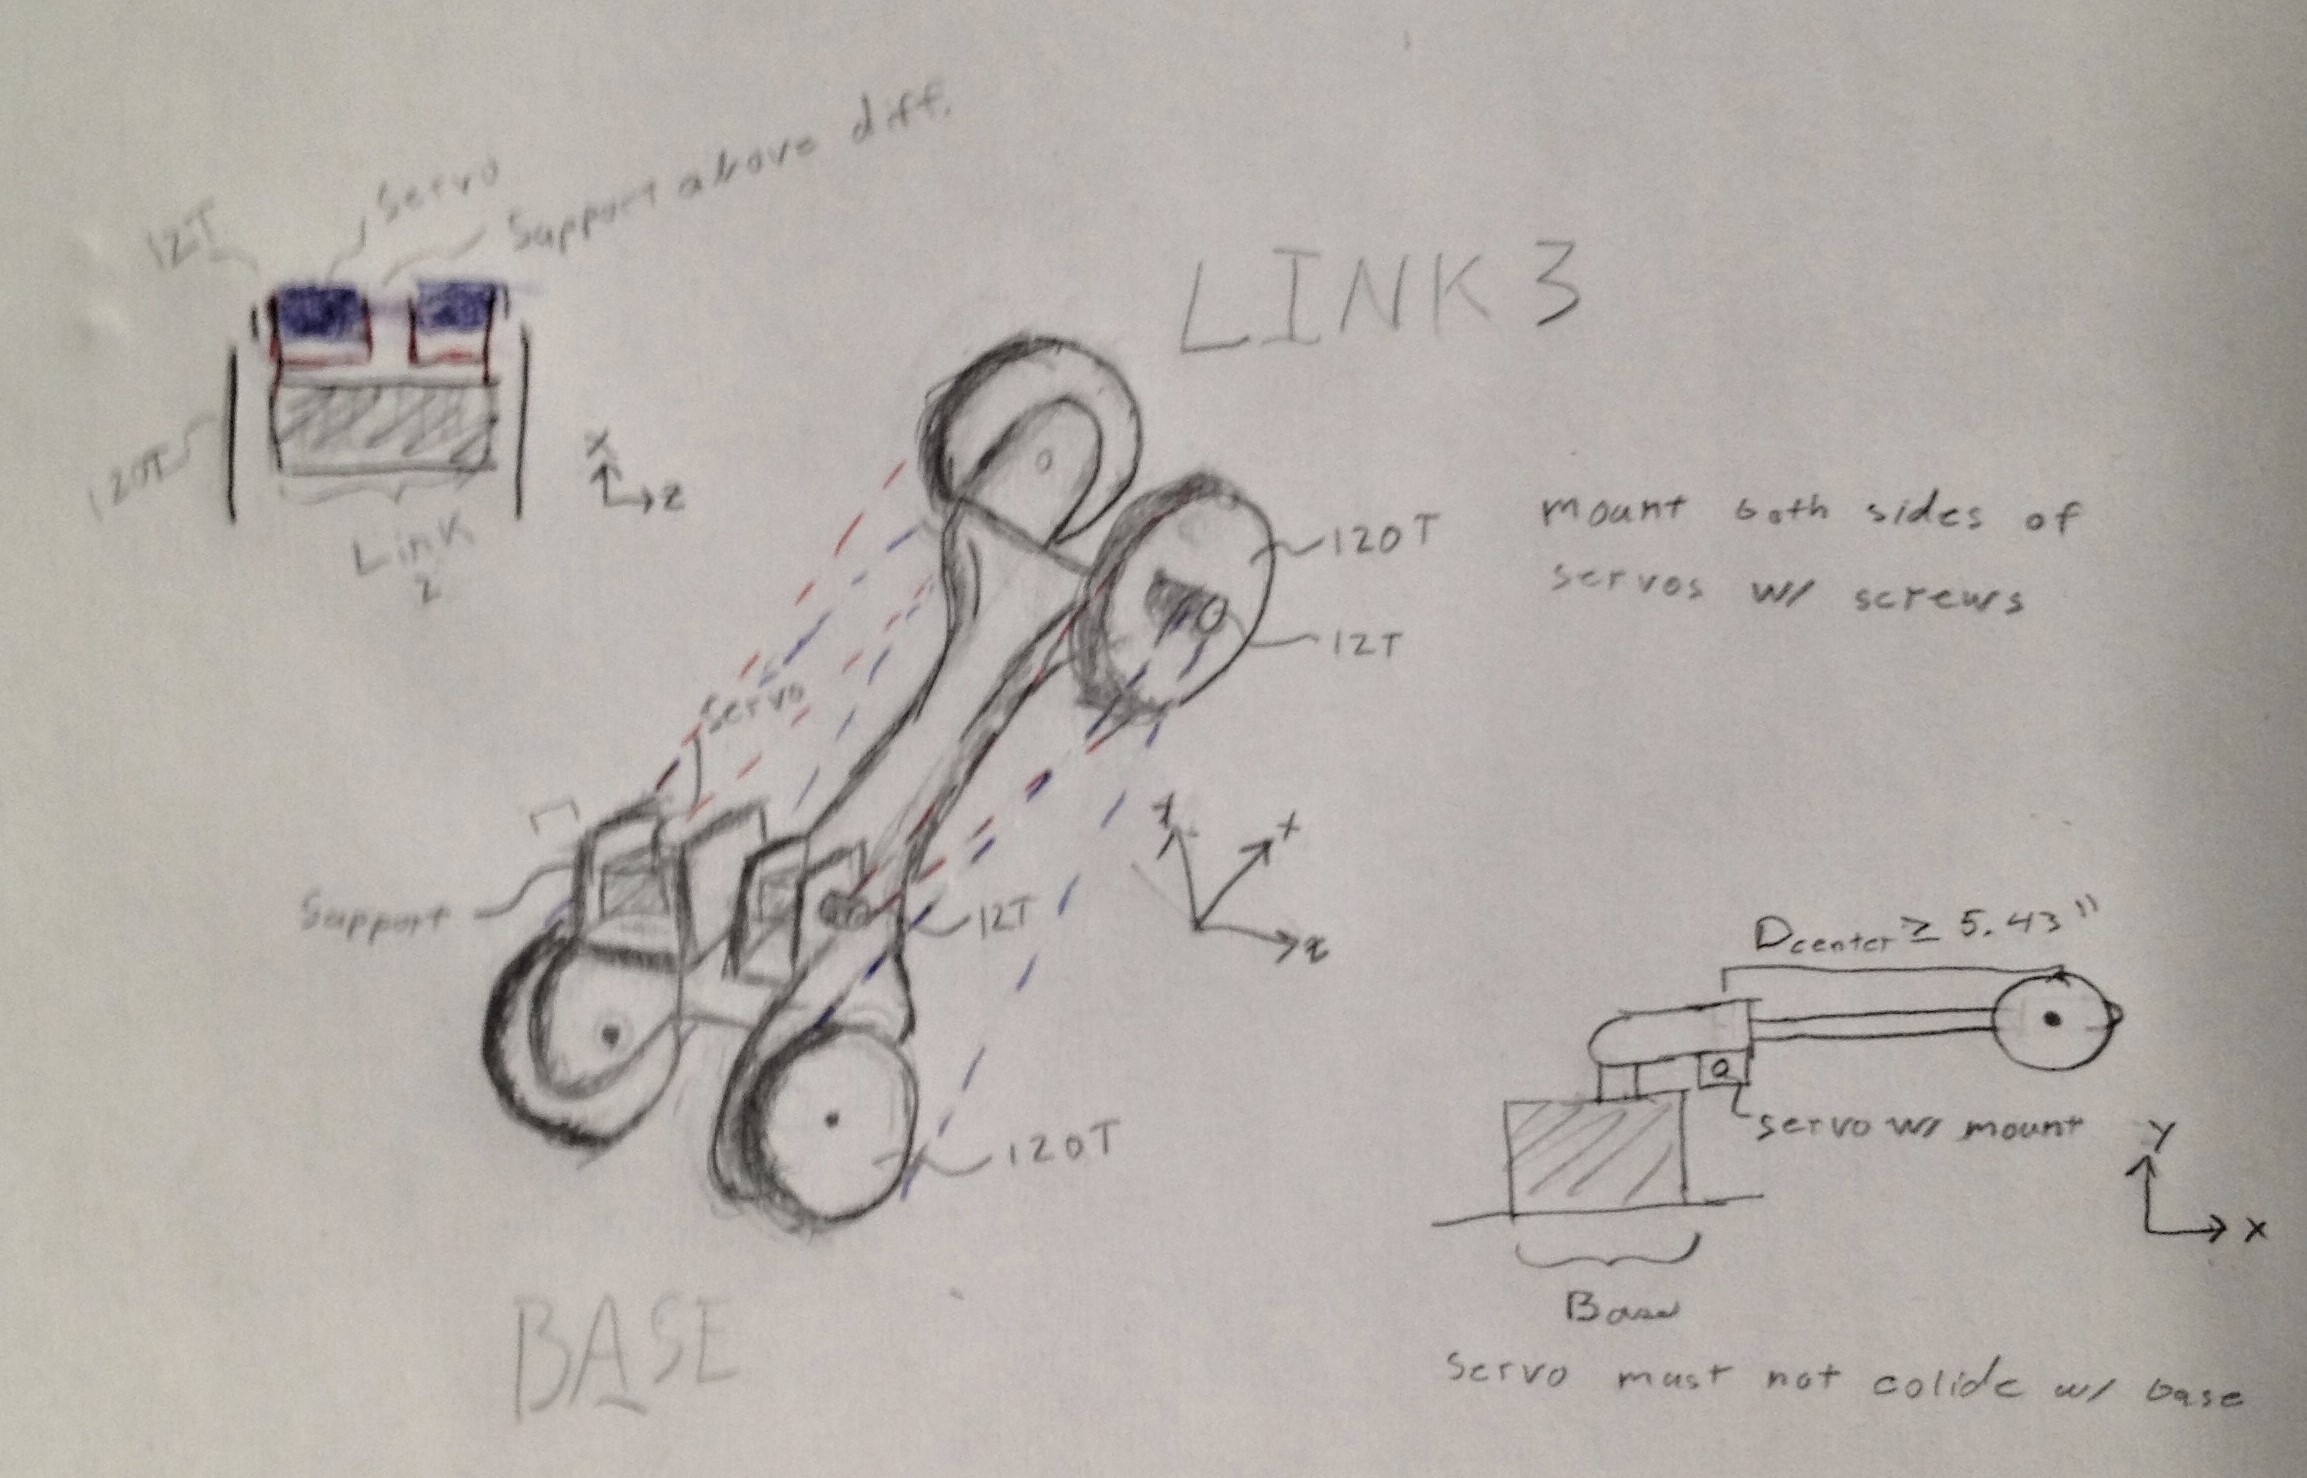 12T
Servo
Support above diff.
120T
Link
2
X
Z
LINK 3
120T
12T
mount both sides of
servos w/ screws
Servo
Support
12T
120T
Y
X
Z
BASE
Dcenter ≥ 5.43"
servo w/ mount
Y
X
Base
Servo must not colide w/ base